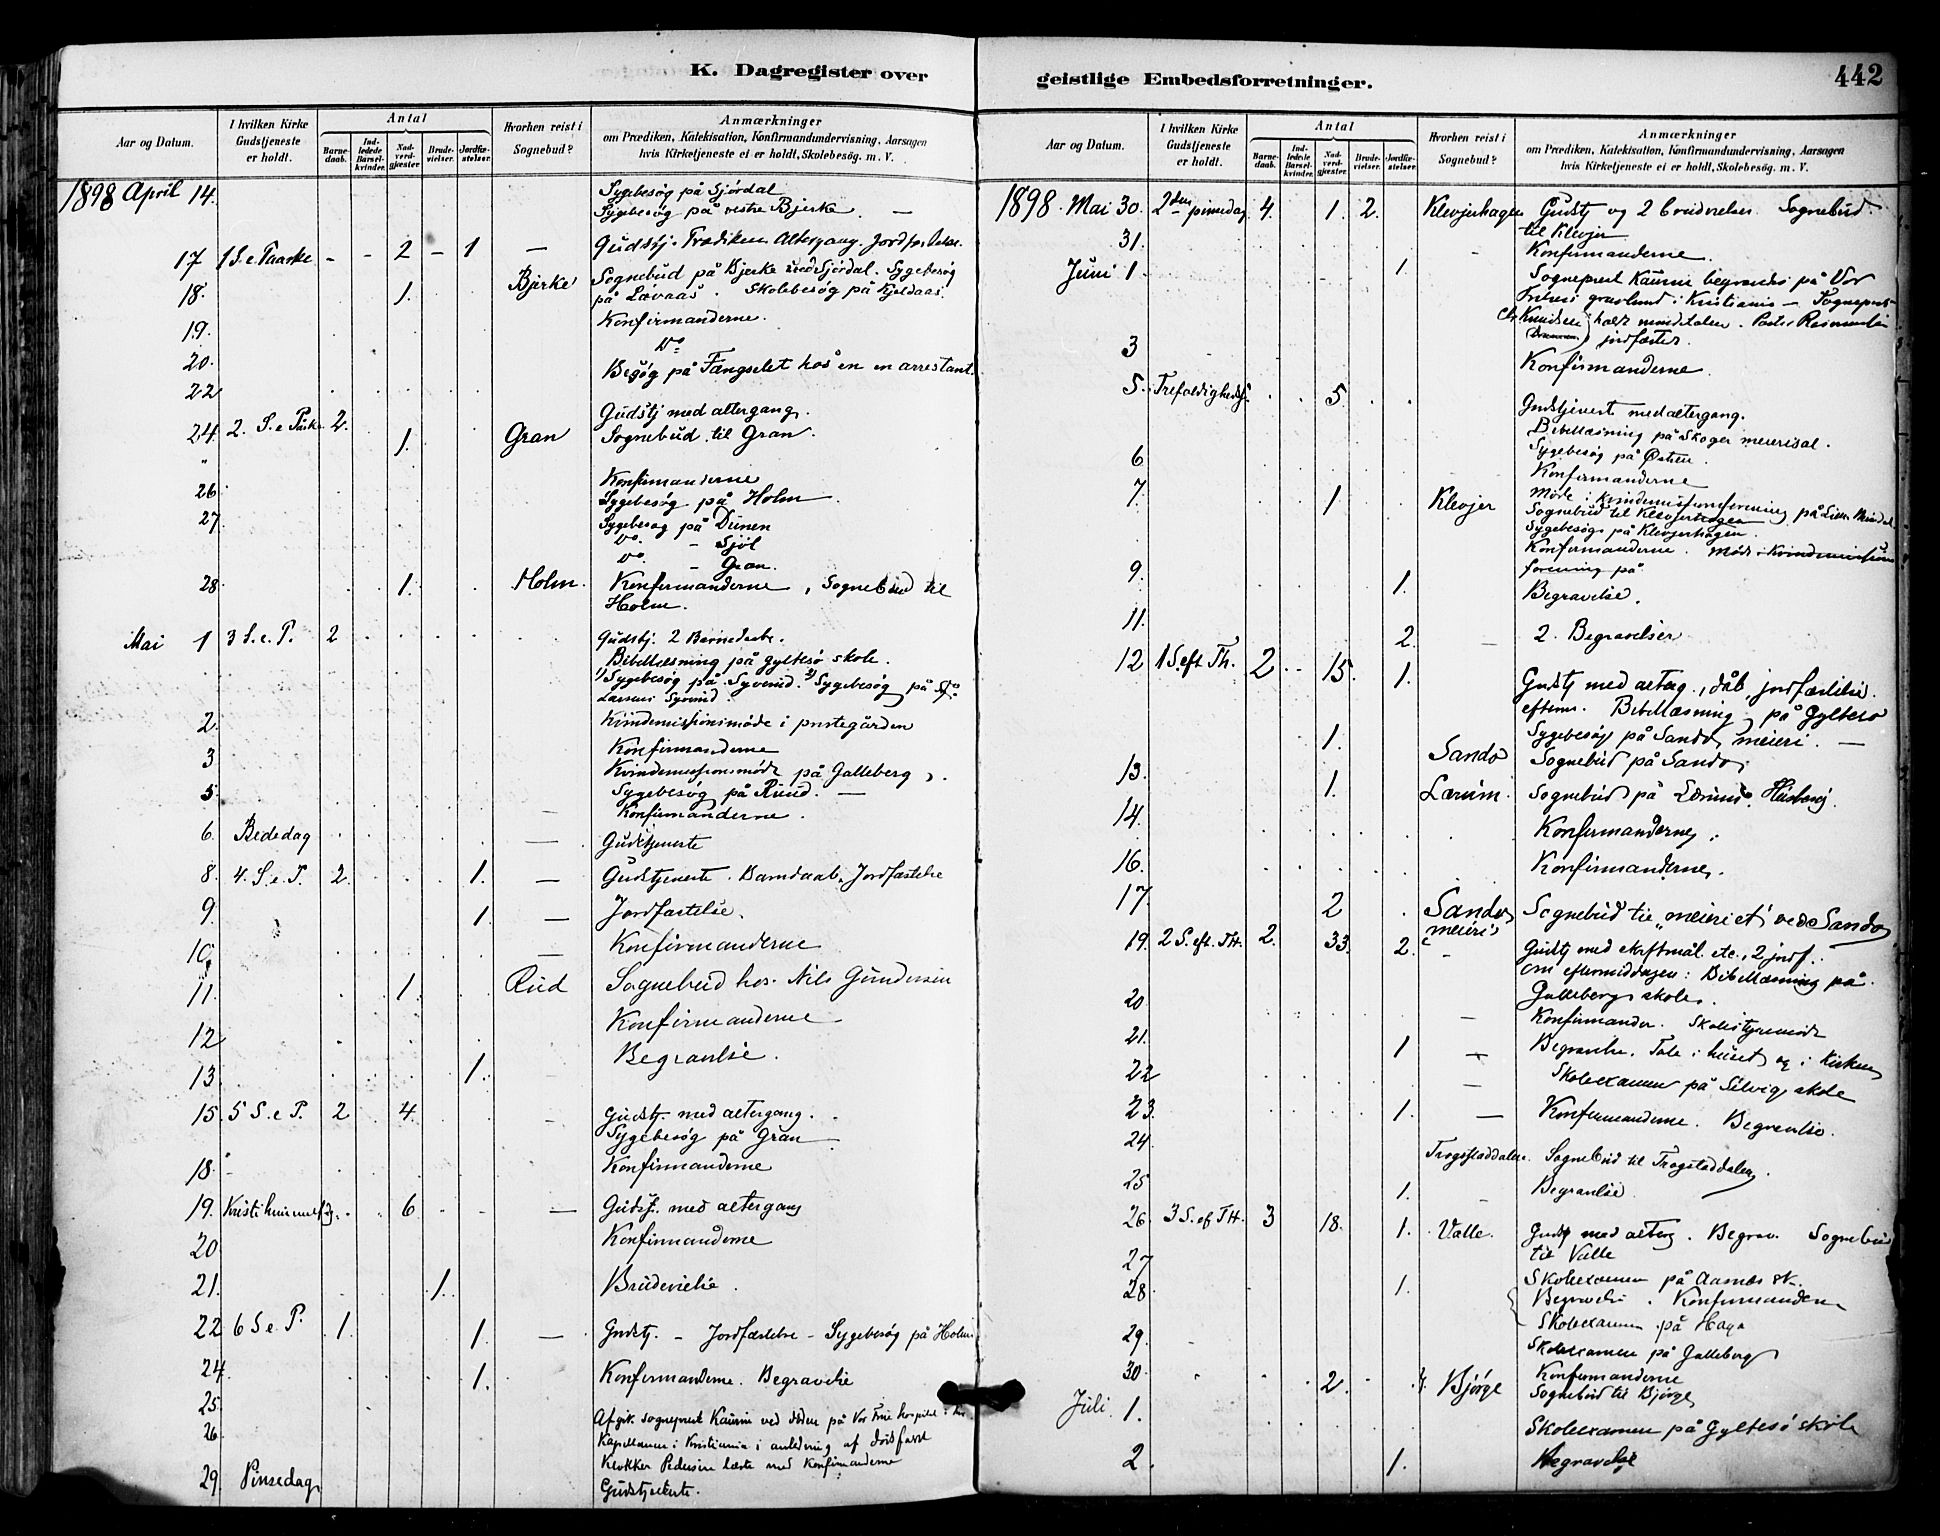 K. Dagregister over
Aar og Datum.
I hvilken Kirke Gudstjeneste er holdt.
Antal
Barnedaab.
Indledede Barselkvinder.
Nadverdgjæster.
Brudevielser.
Jordfæstelser.
Hvorhen reist i Sognebud?
Anmærkninger
om Prædiken, Katekisation, Konfirmandundervisning, Aarsagen
hvis Kirketjeneste ei er holdt, Skolebesøg. m. V.
1898 April 14. Sygebesøg på Sjørdal
Sygebesøg på vestre Bjerke. —
17 1 S. e. Paaske - - 2 - 1 — Gudstj. Prædiken Altergang. Jordfæstelse.
18. 1. Bjerke Sognebud på Bjerke Sjørdal. Sygebesøg
på Løvaas. Skolebesøg på Kjeldaas.
19. Konfirmanderne.
20. Do
22 Besøg på Fængselet hos en en arrestant.
24. 2. S. e Påske 2. Gudstj med altergang.
" 1. Gran Sognebud til Gran.
26 Konfirmanderne
Sygebesøg på Holm
27. Sygebesøg på Dunen
Do. - Sjøl
Do. - Gran.
28 1. Holm. Konfirmanderne, Sognebud til
Holm.
Mai 1 3 S. e. P. 2 Gudstj. 2 Barnedaabe.
Bibellæsning på Gyltesø skole.
1) Sygebesøg på Syverud. 2) Sygebesøg på
2. Kvindemissionsmøde i prestegården
3 Konfirmanderne
Kvindemissionsmøde på Galleberg.
5 Sygebesøg på Ruud. —
— Konfirmanderne.
6. Bededag — Gudstjeneste
8. 4. S. e. P. 2. 1. — Gudstjeneste. Barndaab. Jordfæstelse
9. 1. — Jordfæstelse.
10. — Konfirmanderne
11. 1. Rud Sognebud hos Nils Gundersen
12 Konfirmanderne
13 1. Begravelse.
15. 5 S. e P. 2 4. Gudstj med altergang.
Sygebesøg på Gran
18. Konfirmanderne
19. Kristi himmelf. dg. 6 — Gudstj. med altergang
20 Konfirmanderne
21. 1. Brudevielse.
22 6 S. e P. 1. 1. — Gudstj. - Jordfæstelse - Sygebesøg på Holm
24 1. Konfirmanderne. Begravelse
25. Afgik sogneprest Kaurin ved døden på Vor Frue hospital i
26. Kapellanen i Kristiania i anledning af dødsfald
Klokker Pedersen læste med Konfirmanderne
29 Pinsedag Gudstjeneste.
geistlige Embedsforretninger.
442
Aar og Datum.
I hvilken Kirke Gudstjeneste er holdt.
Antal
Barnedaab.
Indledede Barselkvinder.
Nadverdgjæster.
Brudevielser.
Jordfæstelser.
Hvorhen reist i Sognebud?
Anmærkninger
om Prædiken, Katekisation, Konfirmandundervisning, Aarsagen
hvis Kirketjeneste ei er holdt, Skolebesøg. m. V.
1898. Mai 30. 2den pinsedag 4. 1. 2. Klevjerhagen Gudstj og 2 brudvielser. Sognebud
til Klevjer
31. Konfirmanderne.
Juni 1. 1. Sogneprest Kaurin begravedes på Vor
Frelsers gravlund i Kristiania - Sogneprest
Chr Knudsen holdt mindetalen. Pastor
jordfæster.
3 Konfirmanderne.
5. Trefoldighedsf. 5. Gudstjenest med altergang.
Bibellæsning på Skoger meierisal.
6. Sygebesøg på Østen.
Konfirmanderne
7. 1 Klevjer Møde i kvindemissionsforening på Lille
Sognebud til Klevjerhagen
Sygebesøg på Klevjerhagen.
9. Konfirmanderne. Møde i Kvindemissions
forening på
1. Begravelse.
11. 2. — 2. Begravelser
12 1 S. eft Th. 2 15. 1. Gudstj med alterg., dåb, jordfæstelse.
efterm. Bibellæsning på Gyltesø
Sygebesøg på Sandø meieri. —
1. Sandø Sognebud på Sandø.
13. 1. Lærum. Sognebud på Lærum.
14. Konfirmanderne.
16. Konfirmanderne.
17 2 Sandø meieri Sognebud til "meieriet" ved Sandø
19. 2 S. eft. TH. 2. 33. 2. - Gudstj med skriftmål etc., 2 jordf.
om eftermiddagen: Bibellæsning på
Galleberg skole.
20 — Konfirmander. Skolestyremøde
21. 1 — Begravelse. Tale i huset og i Kirken
22 — Skoleexamen på Selvig skole
23. 1. — Konfirmanderne. Begravelse.
24. Trogstaddalen. Sognebud til Trogstaddalen.
25 1. Begravelse.
26. 3 S. ef TH. 3 18. 1. Valle. Gudstj med alterg. Begrav. Sognebud
til Valle
27 Skoleexamen på Aasnæs sk.
28 1. Begravelse. Konfirmanderne
Skoleexamen på Haga
29. Skoleexamen på Galleberg
30. Konfirmanderne
2. Bjørge Sognebud til Bjørge
Juli 1. Skoleexamen på Gyltesø skole
2. 1. Begravelse